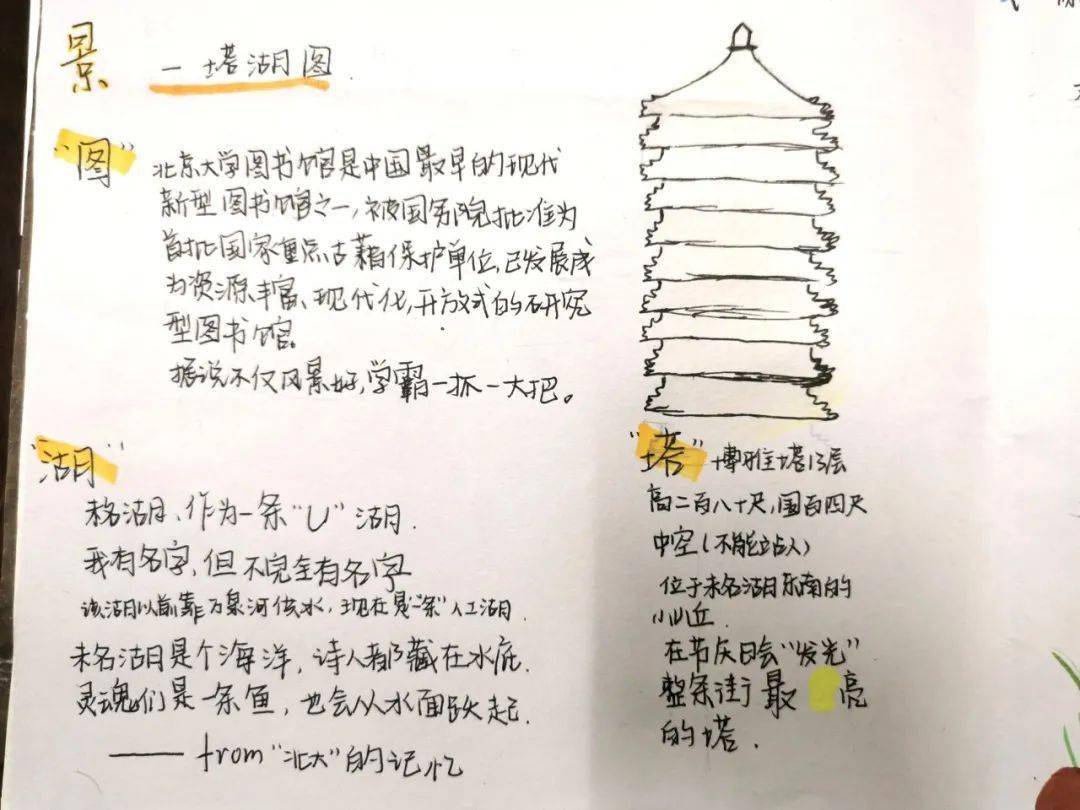 景
一塔湖图.
"图"
北京大学图书馆是中国最早的现代
新型图书馆之一,被国务院批准为
首批国家重点古藉保护单位,已发展成
为资源丰富、现代化,开放式的研究
型图书馆。
据说不仅风景好,学霸一抓一大把。
"湖"
未名湖、作为一条"U"湖.
我有名字,但不完全有名字
该湖以前靠万泉河供水,现在是"条"人工湖.
未名湖是个海洋,诗人都藏在水底.
灵魂们是一条鱼,也会从水面跃起.
——from"北大"的记忆
"塔"博雅塔13层
高二百八十尺,围百四尺
中空(不能站人)
位于未名湖东南的
小山丘.
在节庆日会"发光"
整条街最 亮
的塔.